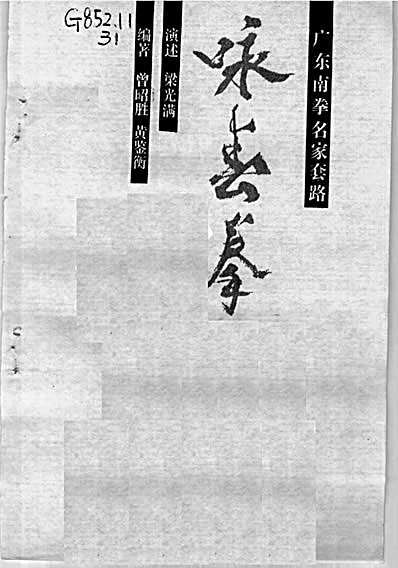 G852.11
31
广东南拳名家套路
咏春拳
演述 梁光满
编著 曾昭胜 黄鉴衡